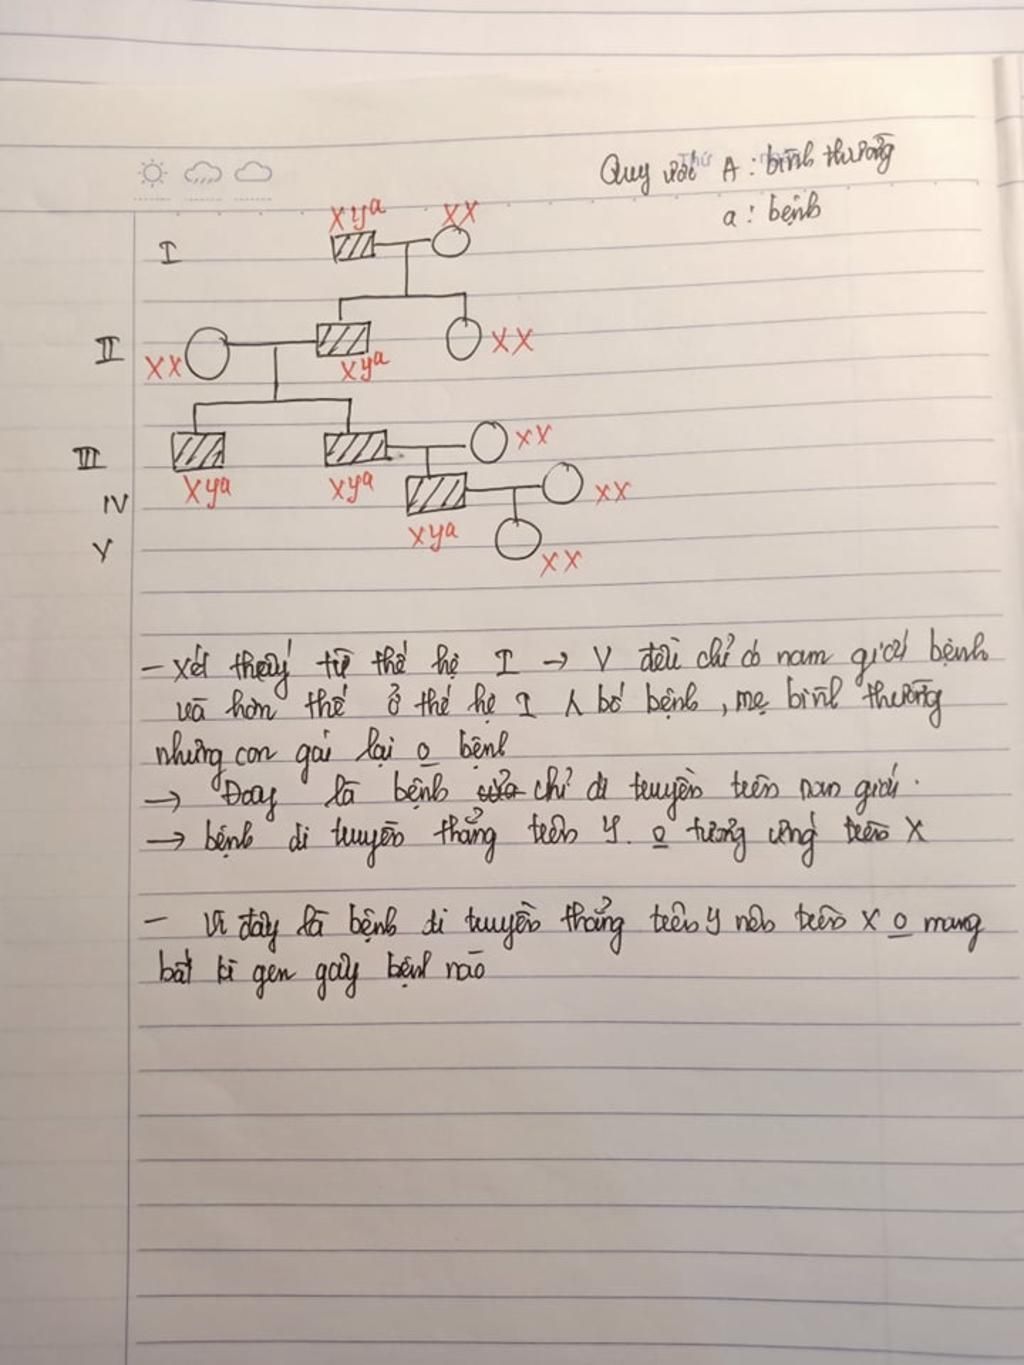 Thứ
Quy ước A : bình thường
a : bệnh
I
XYᵃ XX
II
XX XYᵃ XX
III
XX
XYᵃ XYᵃ
IV
XX
XYᵃ
V
XX
- xét thấy từ thế hệ I → V đều chỉ có nam giới bệnh
và hơn thế ở thế hệ I bố bệnh , mẹ bình thường
nhưng con gái lại o bệnh
→ Đây là bệnh chỉ di truyền trên nam giới .
→ bệnh di truyền thẳng trên Y. o tương ứng trên X
- Vì đây là bệnh di truyền thẳng trên Y nên trên X o mang
bất kì gen gây bệnh nào